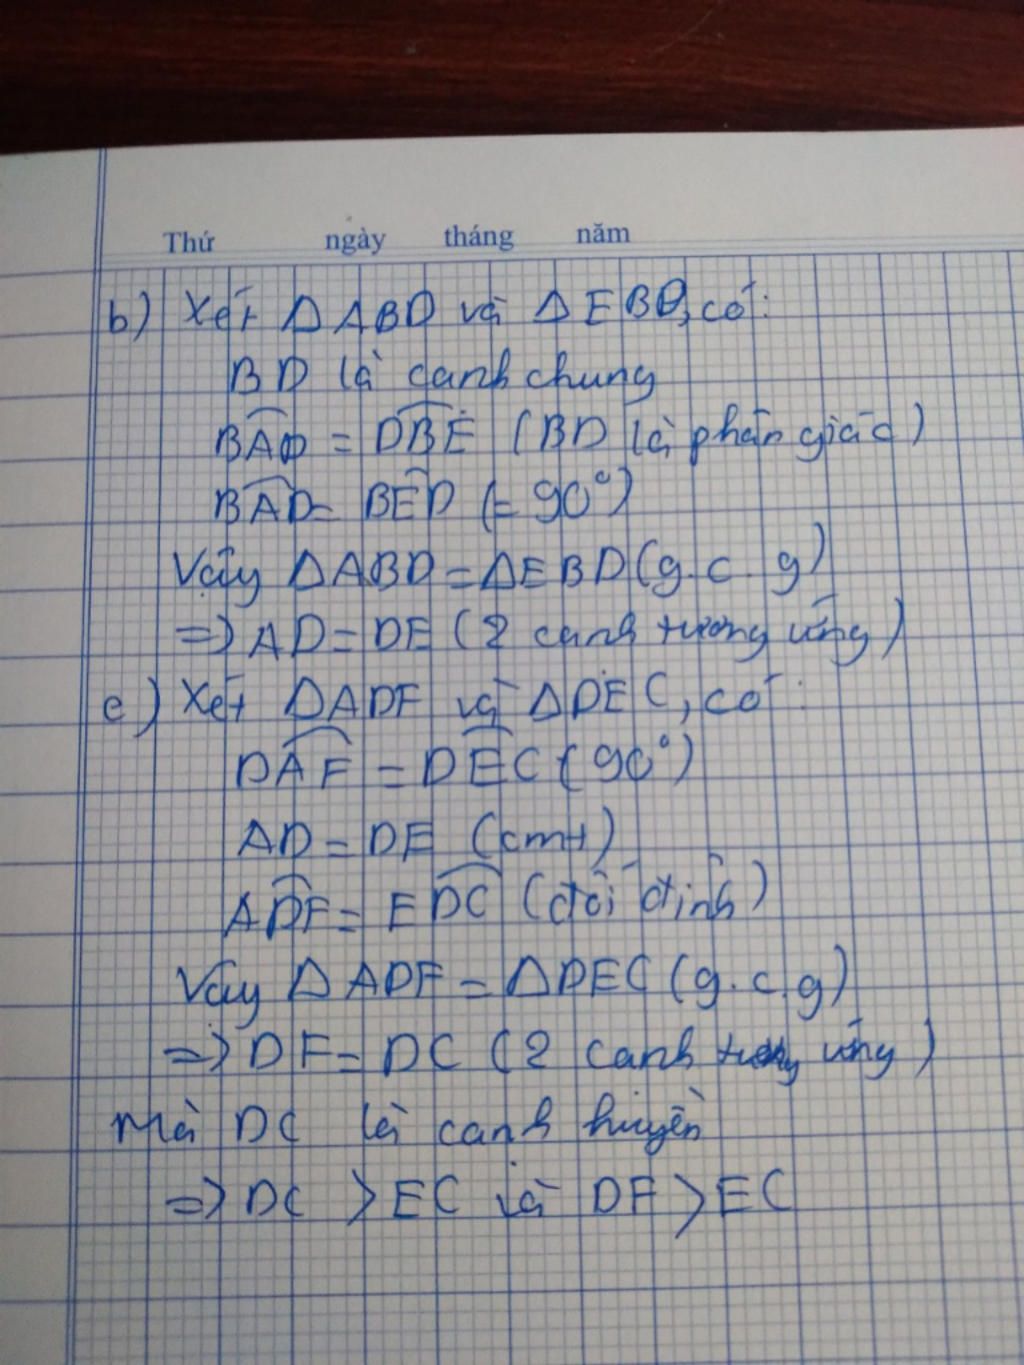 Thứ ngày tháng năm
b) Xét ΔABD và ΔEBD, có:
BD là cạnh chung
BAD = DBE (BD là phân giác)
BAD = BED (= 90°)
Vậy ΔABD = ΔEBD (g.c.g)
=> AD = DE (2 cạnh tương ứng)
c) Xét ΔADF và ΔDEC, có:
DAF = DEC (90°)
AD = DE (cmt)
ADF = EDC (đối đỉnh)
Vậy ΔADF = ΔDEC (g.c.g)
=> DF = DC (2 cạnh tương ứng)
Mà DC là cạnh huyền
=> DC > EC và DF > EC